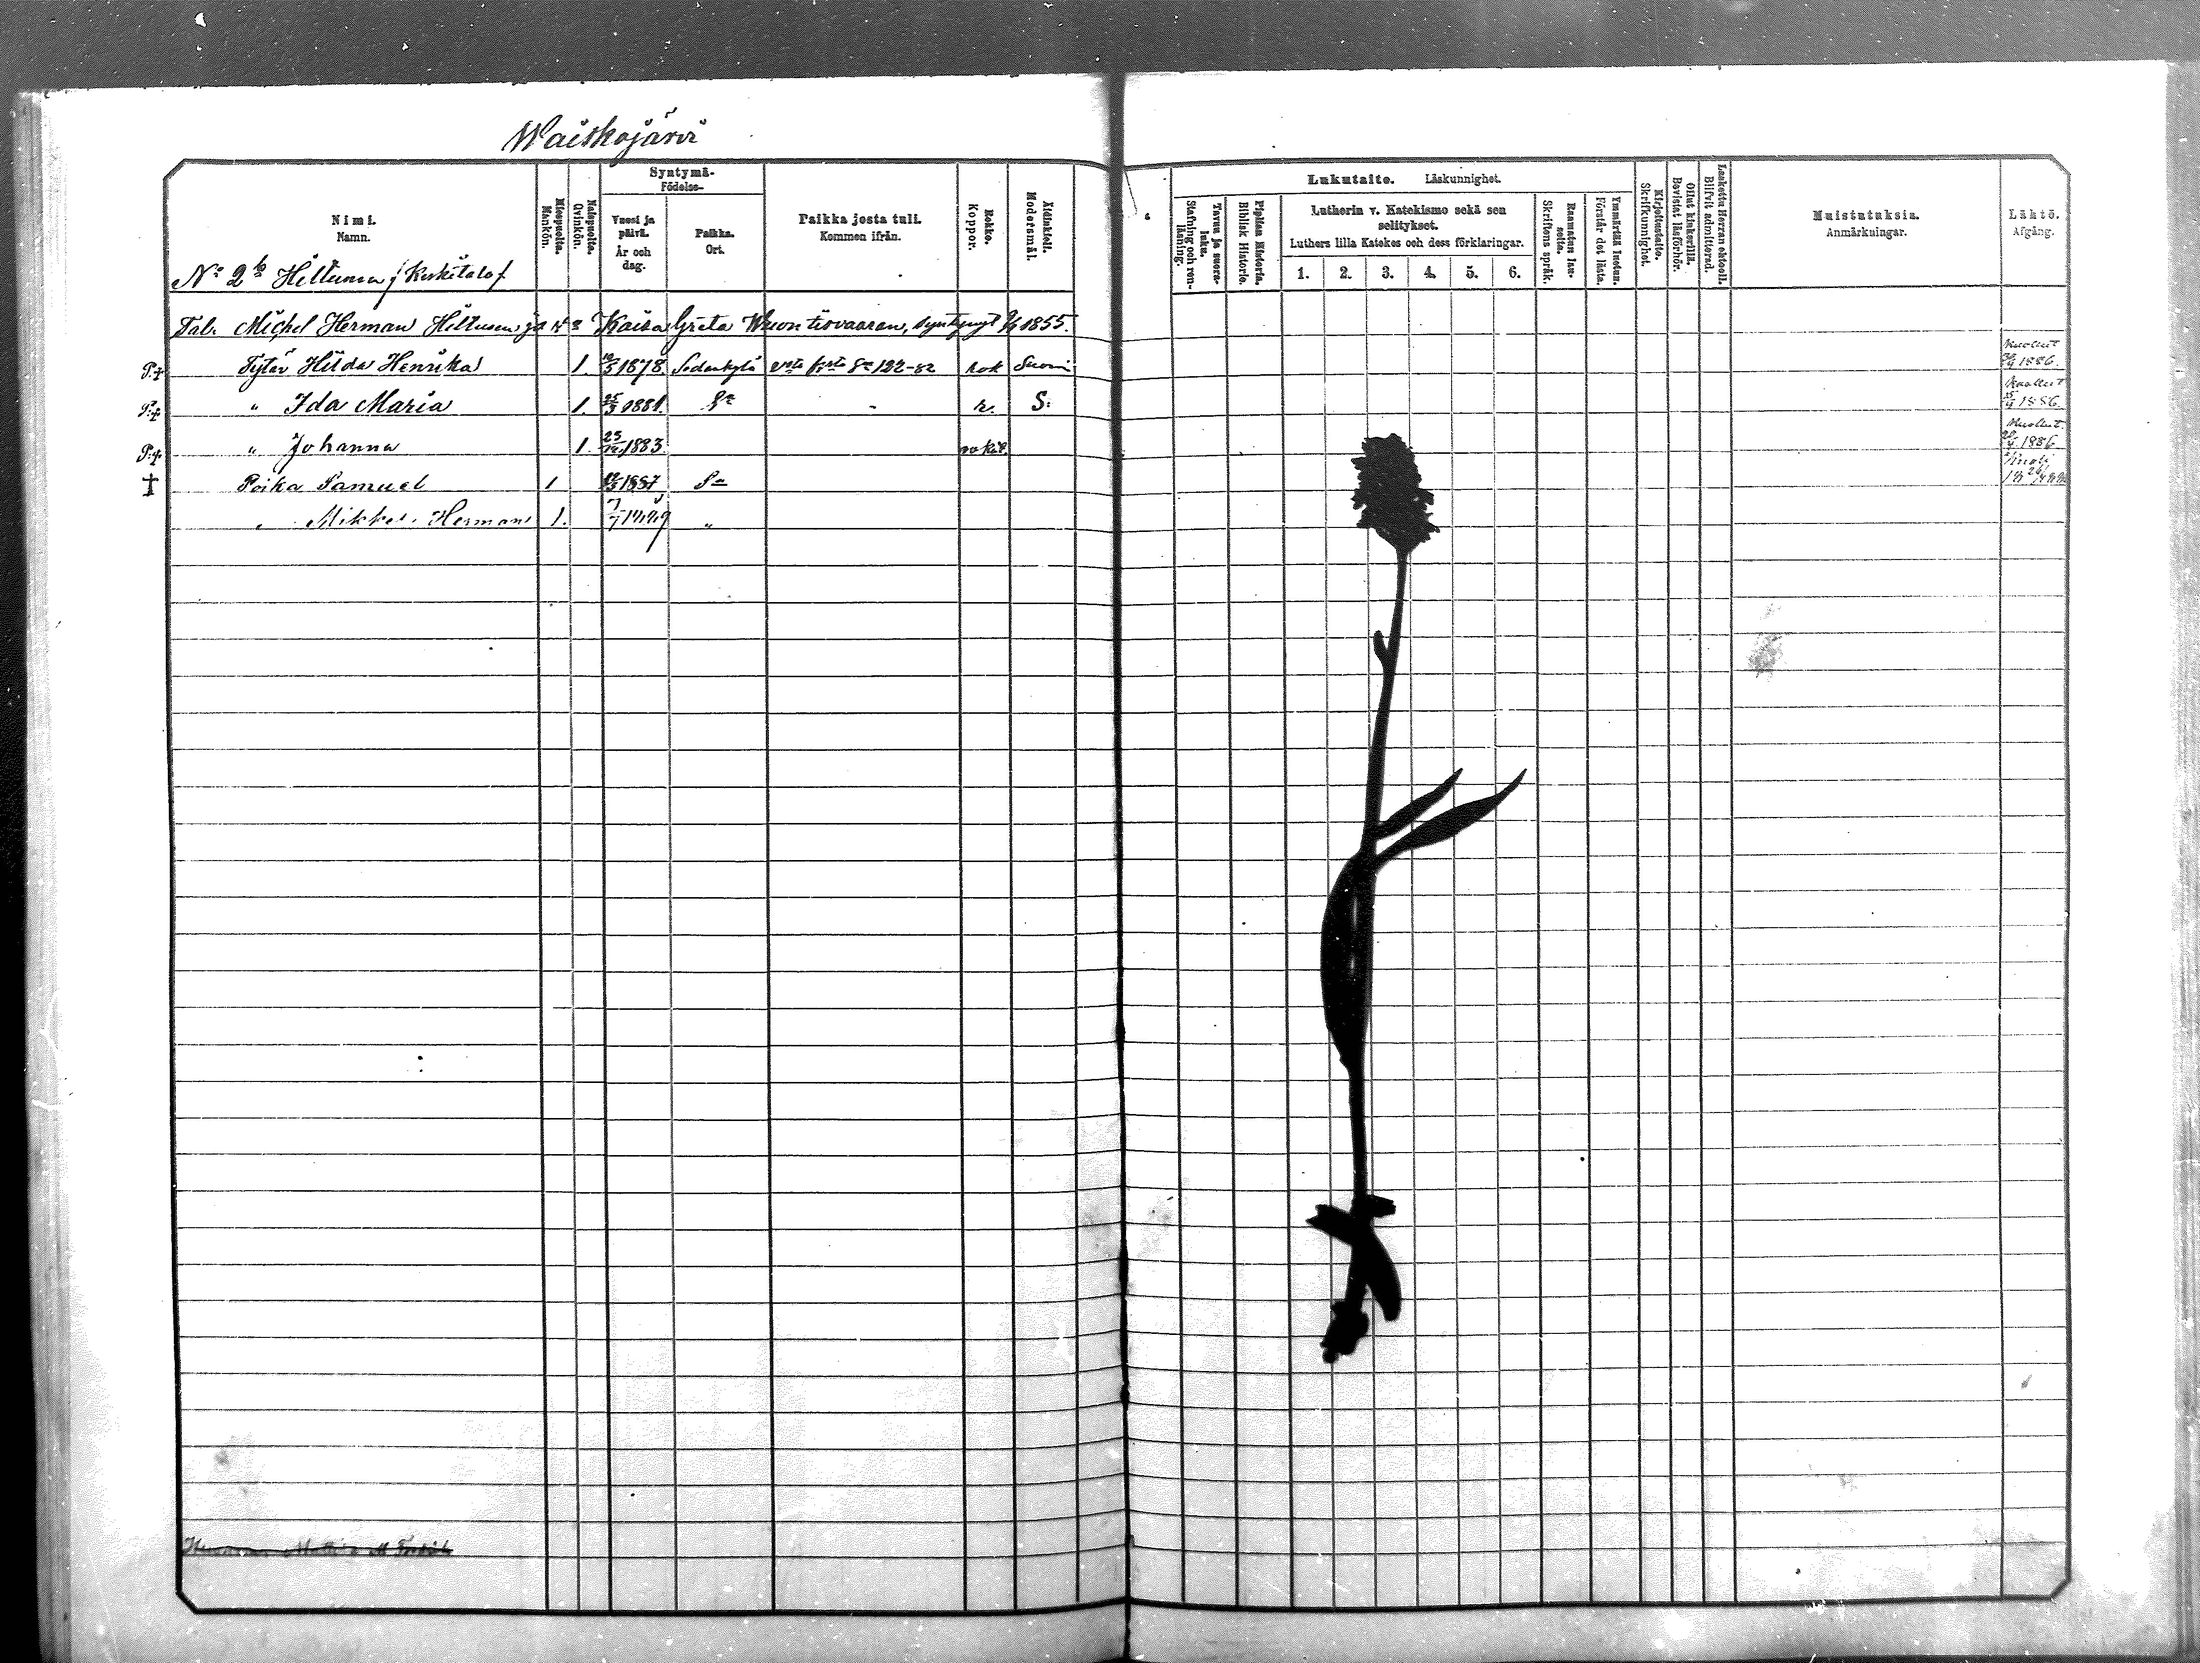 Waiskojärvi
Syntymä-
Födelse-
Nimi.
Namn.
Miespuolta.
Mankön.
Naispuolta.
Qvinkön.
Vuosi ja päivä.
År och dag.
Paikka.
Ort.
Paikka josta tuli.
Kommen ifrån.
Rokko.
Koppor.
Äidinkieli.
Modersmål.
No 2 Hiltunen / Keskitalo /
Tal. Michel Herman Hiltunen ja Kaisa Greta syntynyt 1855.
Tytär Hilda Henrika 1. 1878 Sodankylä 122-82 rok Suomi
" Ida Maria 1. 25/3 1881. Sn r. S:
" Johanna 1. 1883.
Poika Samuel 1 1887 Sn
" Mikkel Herman 1. "
Lukutaito. Läskunnighet.
Tavuu ja suora-luku.
Stafning och ren-läsning.
Piplian Historia.
Biblisk Historie.
Lutherin v. Katekismo sekä sen
selitykset.
Luthers lilla Katekes och dess förklaringar.
1. 2. 3. 4. 5. 6.
Raamatun lau-seita.
Skriftens språk.
Ymmärtää luetun.
Förstår det lästa.
Kirjoitustaito.
Skrifkunnighet.
Ollut kinkerillä.
Bevistat läsförhör.
Laskettu Herran ehtool.
Blifvit admitterad.
Muistutuksia.
Anmärkningar.
Lähtö.
Afgång.
Kuollut
1886.
Kuollut
1886.
Kuollut
1886
Kuoli